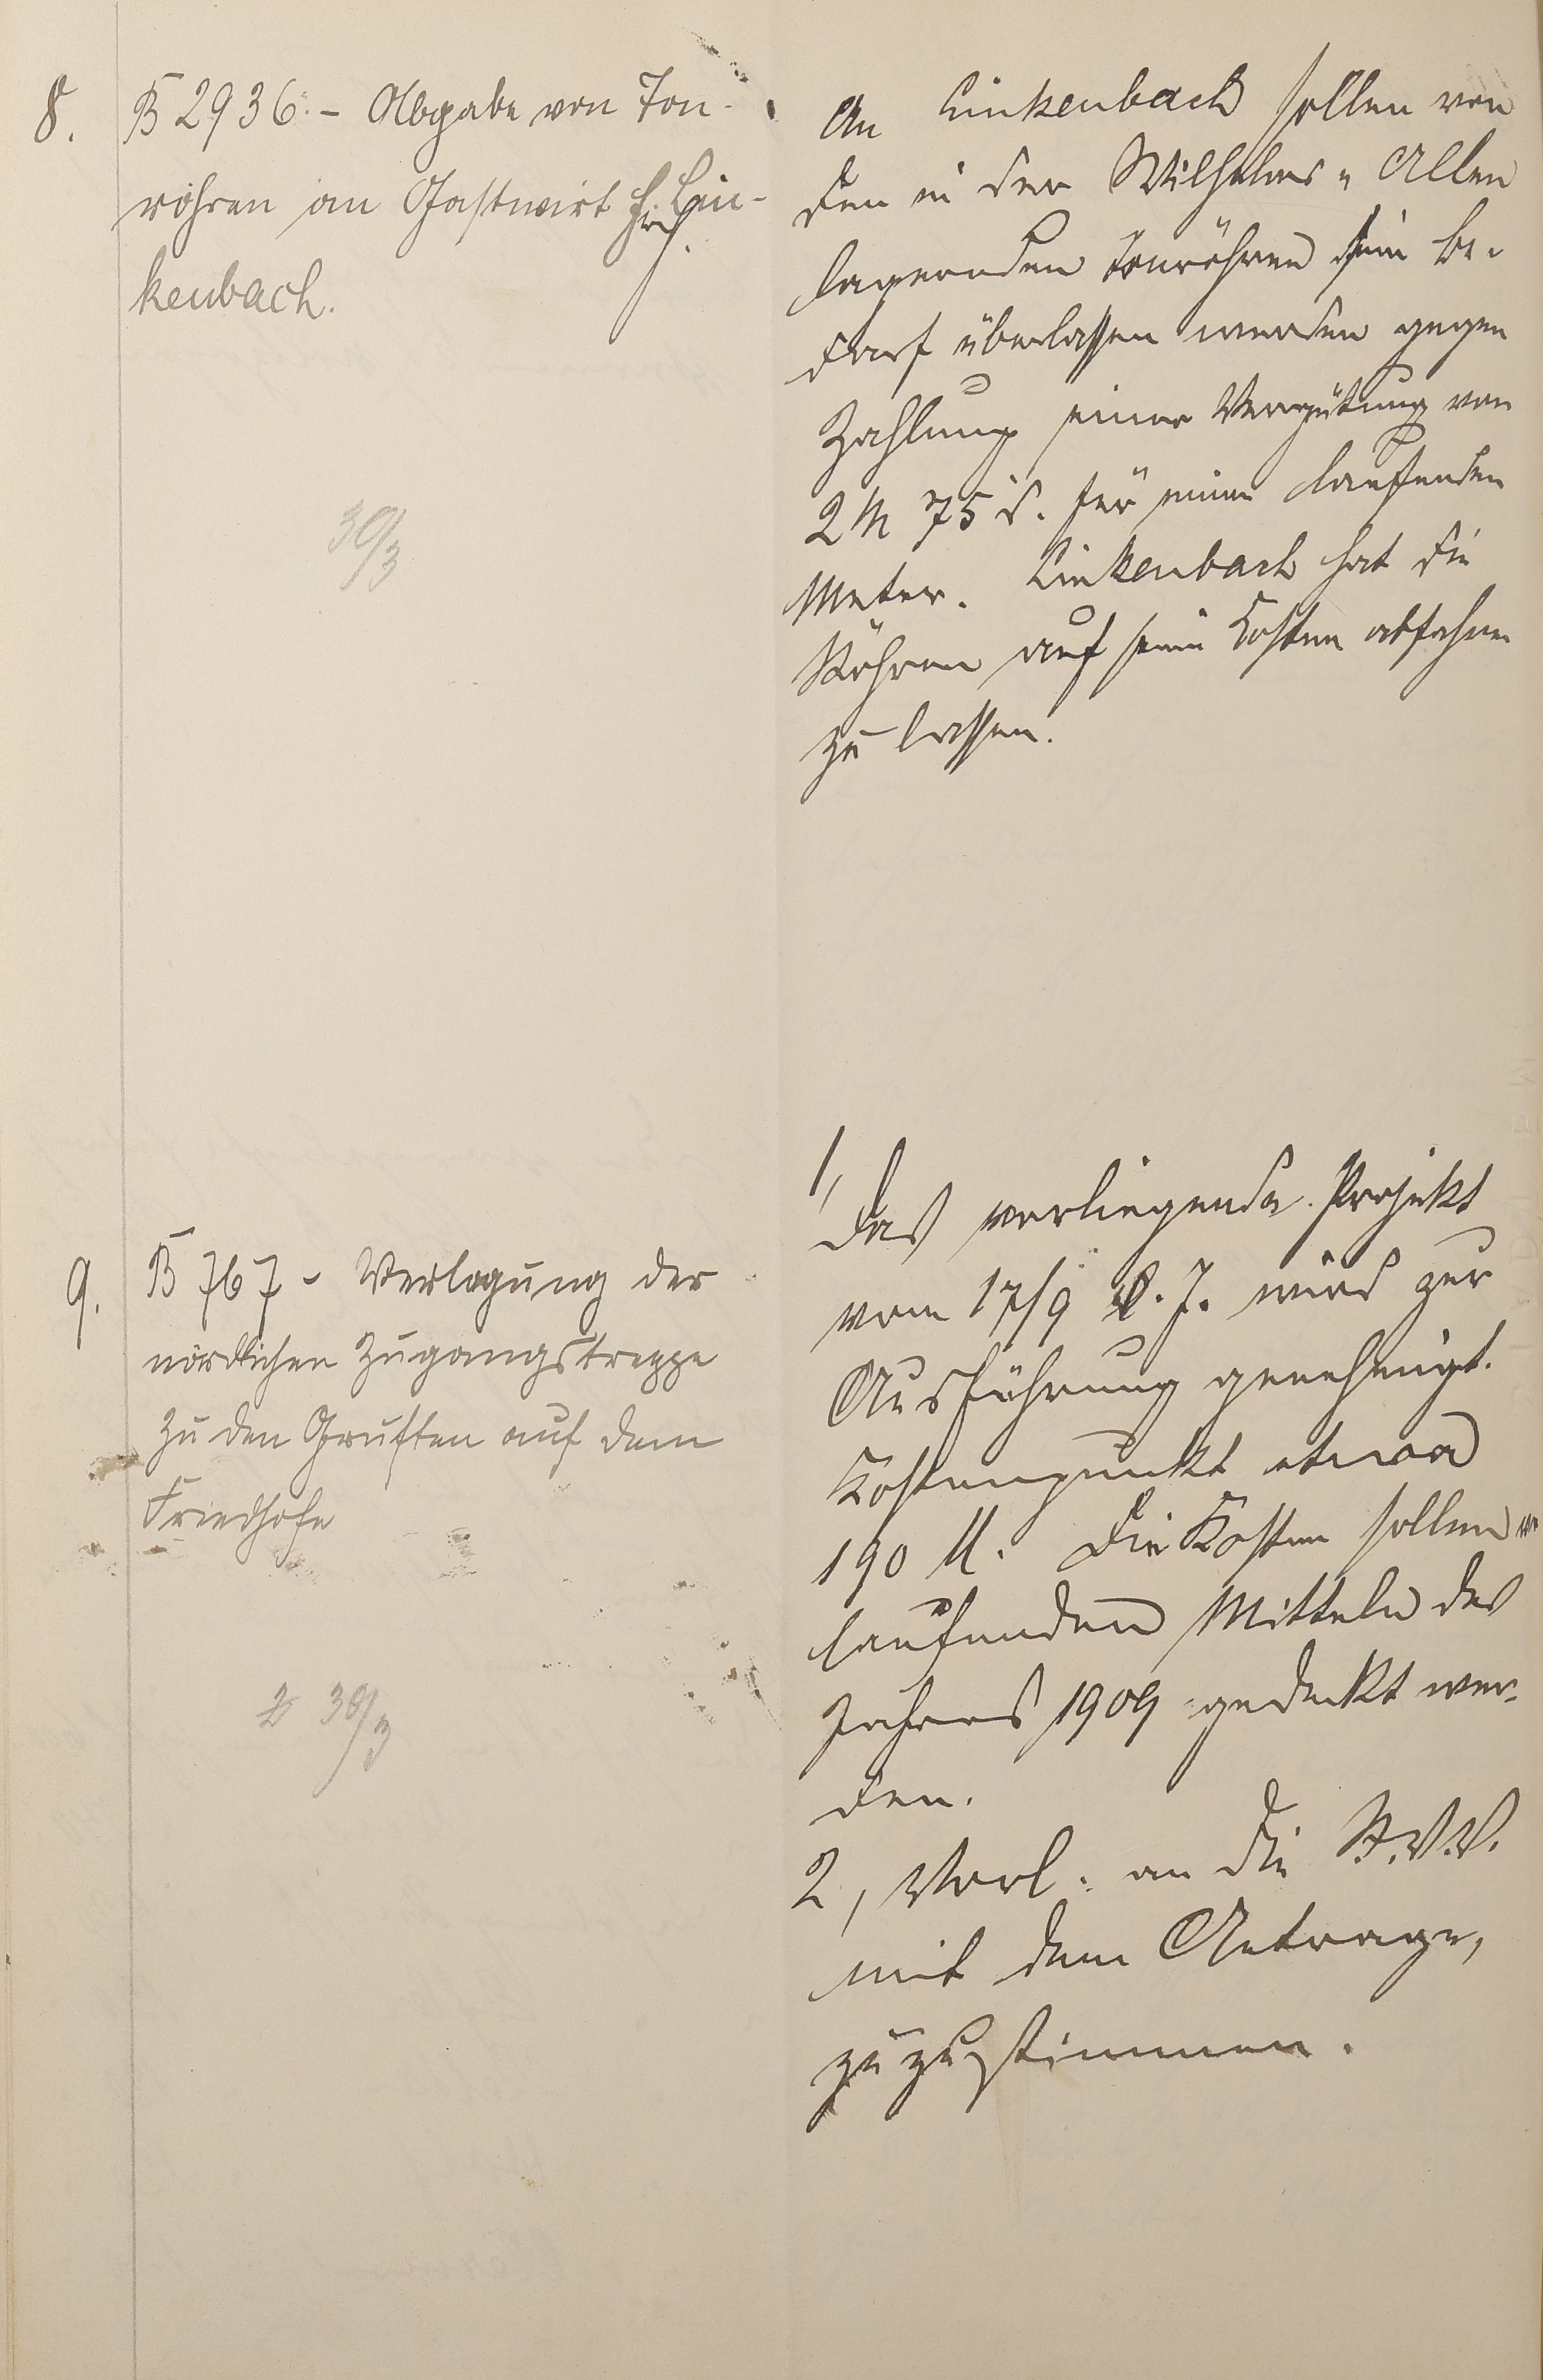 8.
B 2936. - Abgabe von Ton-
röhren an Gastwirt Lin-
kenbach.
30/3
An Linkenbach sollen von
den in der Wilhelms-Allee
lagernden Tonröhren sein Be-
darf überlassen werden gegen
Zahlung einer Vergütung von
2 M 75 d. für einen laufenden
Meter. Linkenbach hat die
Röhren auf seine Kosten abfahren
zu lassen.
9.
B 767 - Verlegung der
nördlichen Zugangstreppe
zu den Gruften auf dem
Friedhofe
30/3
1,
Das vorliegende Projekt
vom 17/9 d. J. wird zur
Ausführung genehmigt.
Kostenpunkt etwa
190 M. Die Kosten sollen
laufenden Mitteln des
Jahres 1909 gedeckt wer-
den.
2, Vorl. an die St.V.V.
mit dem Antrage,
zuzustimmen.